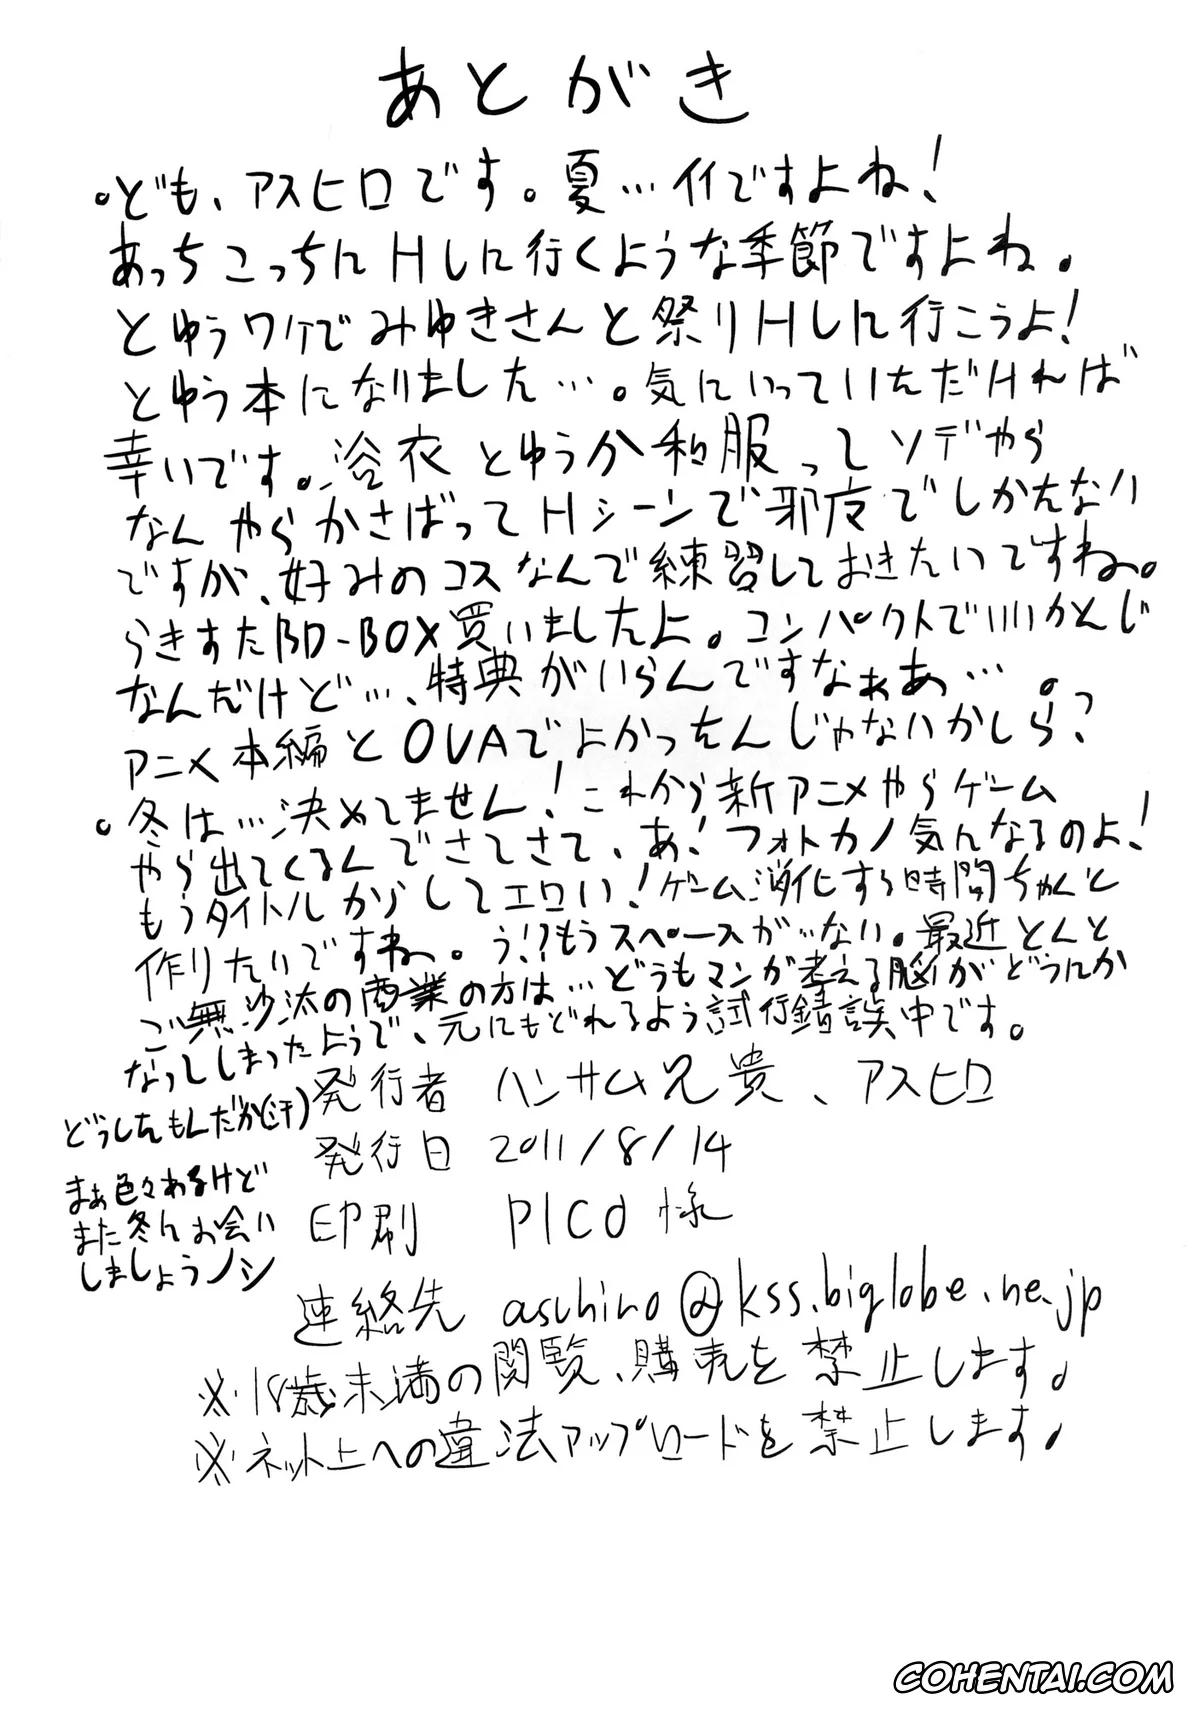 あとがき
。ども、アスヒロです。夏…イイですよね!
あっちこっちにHしに行くような季節ですよね。
とゆうワケでみゆきさんと祭りHしに行こうよ!
とゆう本になりました…。気にいっていただければ
幸いです。浴衣とゆうか和服ってソデやら
なんやらかさばってHシーンで邪广でしかたない
ですが、好みのコスなんで練習しておきたいですね。
らきすたBD-BOX買いましたよ。コンパクトでいいかんじ
なんだけど…、特典がいらんですなぁあ…。
アニメ本編とOVAでよかったんじゃないかしら?
。冬は…決めてません!これから新アニメやらゲーム
やら出てくるんでさてさて、あ!フォトカノ気んなるのよ!
もうタイトルからしてエロい!ゲーム消化する時間ちゃんと
作りたいですね。う!?もうスペースが…ない。最近とんと
ご無沙汰の商業の方は…どうもマンガ考える脳がどうにか
なってしまったようで、元にもどれるよう試行錯誤中です。
どうしたもんだか(汗)
まぁ色々あるけど
また冬にお会い
しましょうノシ
発行者 ハンサム兄貴、アスヒロ
発行日 2011/8/14
印刷 PICO様
連絡先 asuhiro@kss.biglobe.ne.jp
※18歳未満の閲覧、購売を禁止します。
※ネット上への違法アップロードを禁止します。
COHENTAI.COM